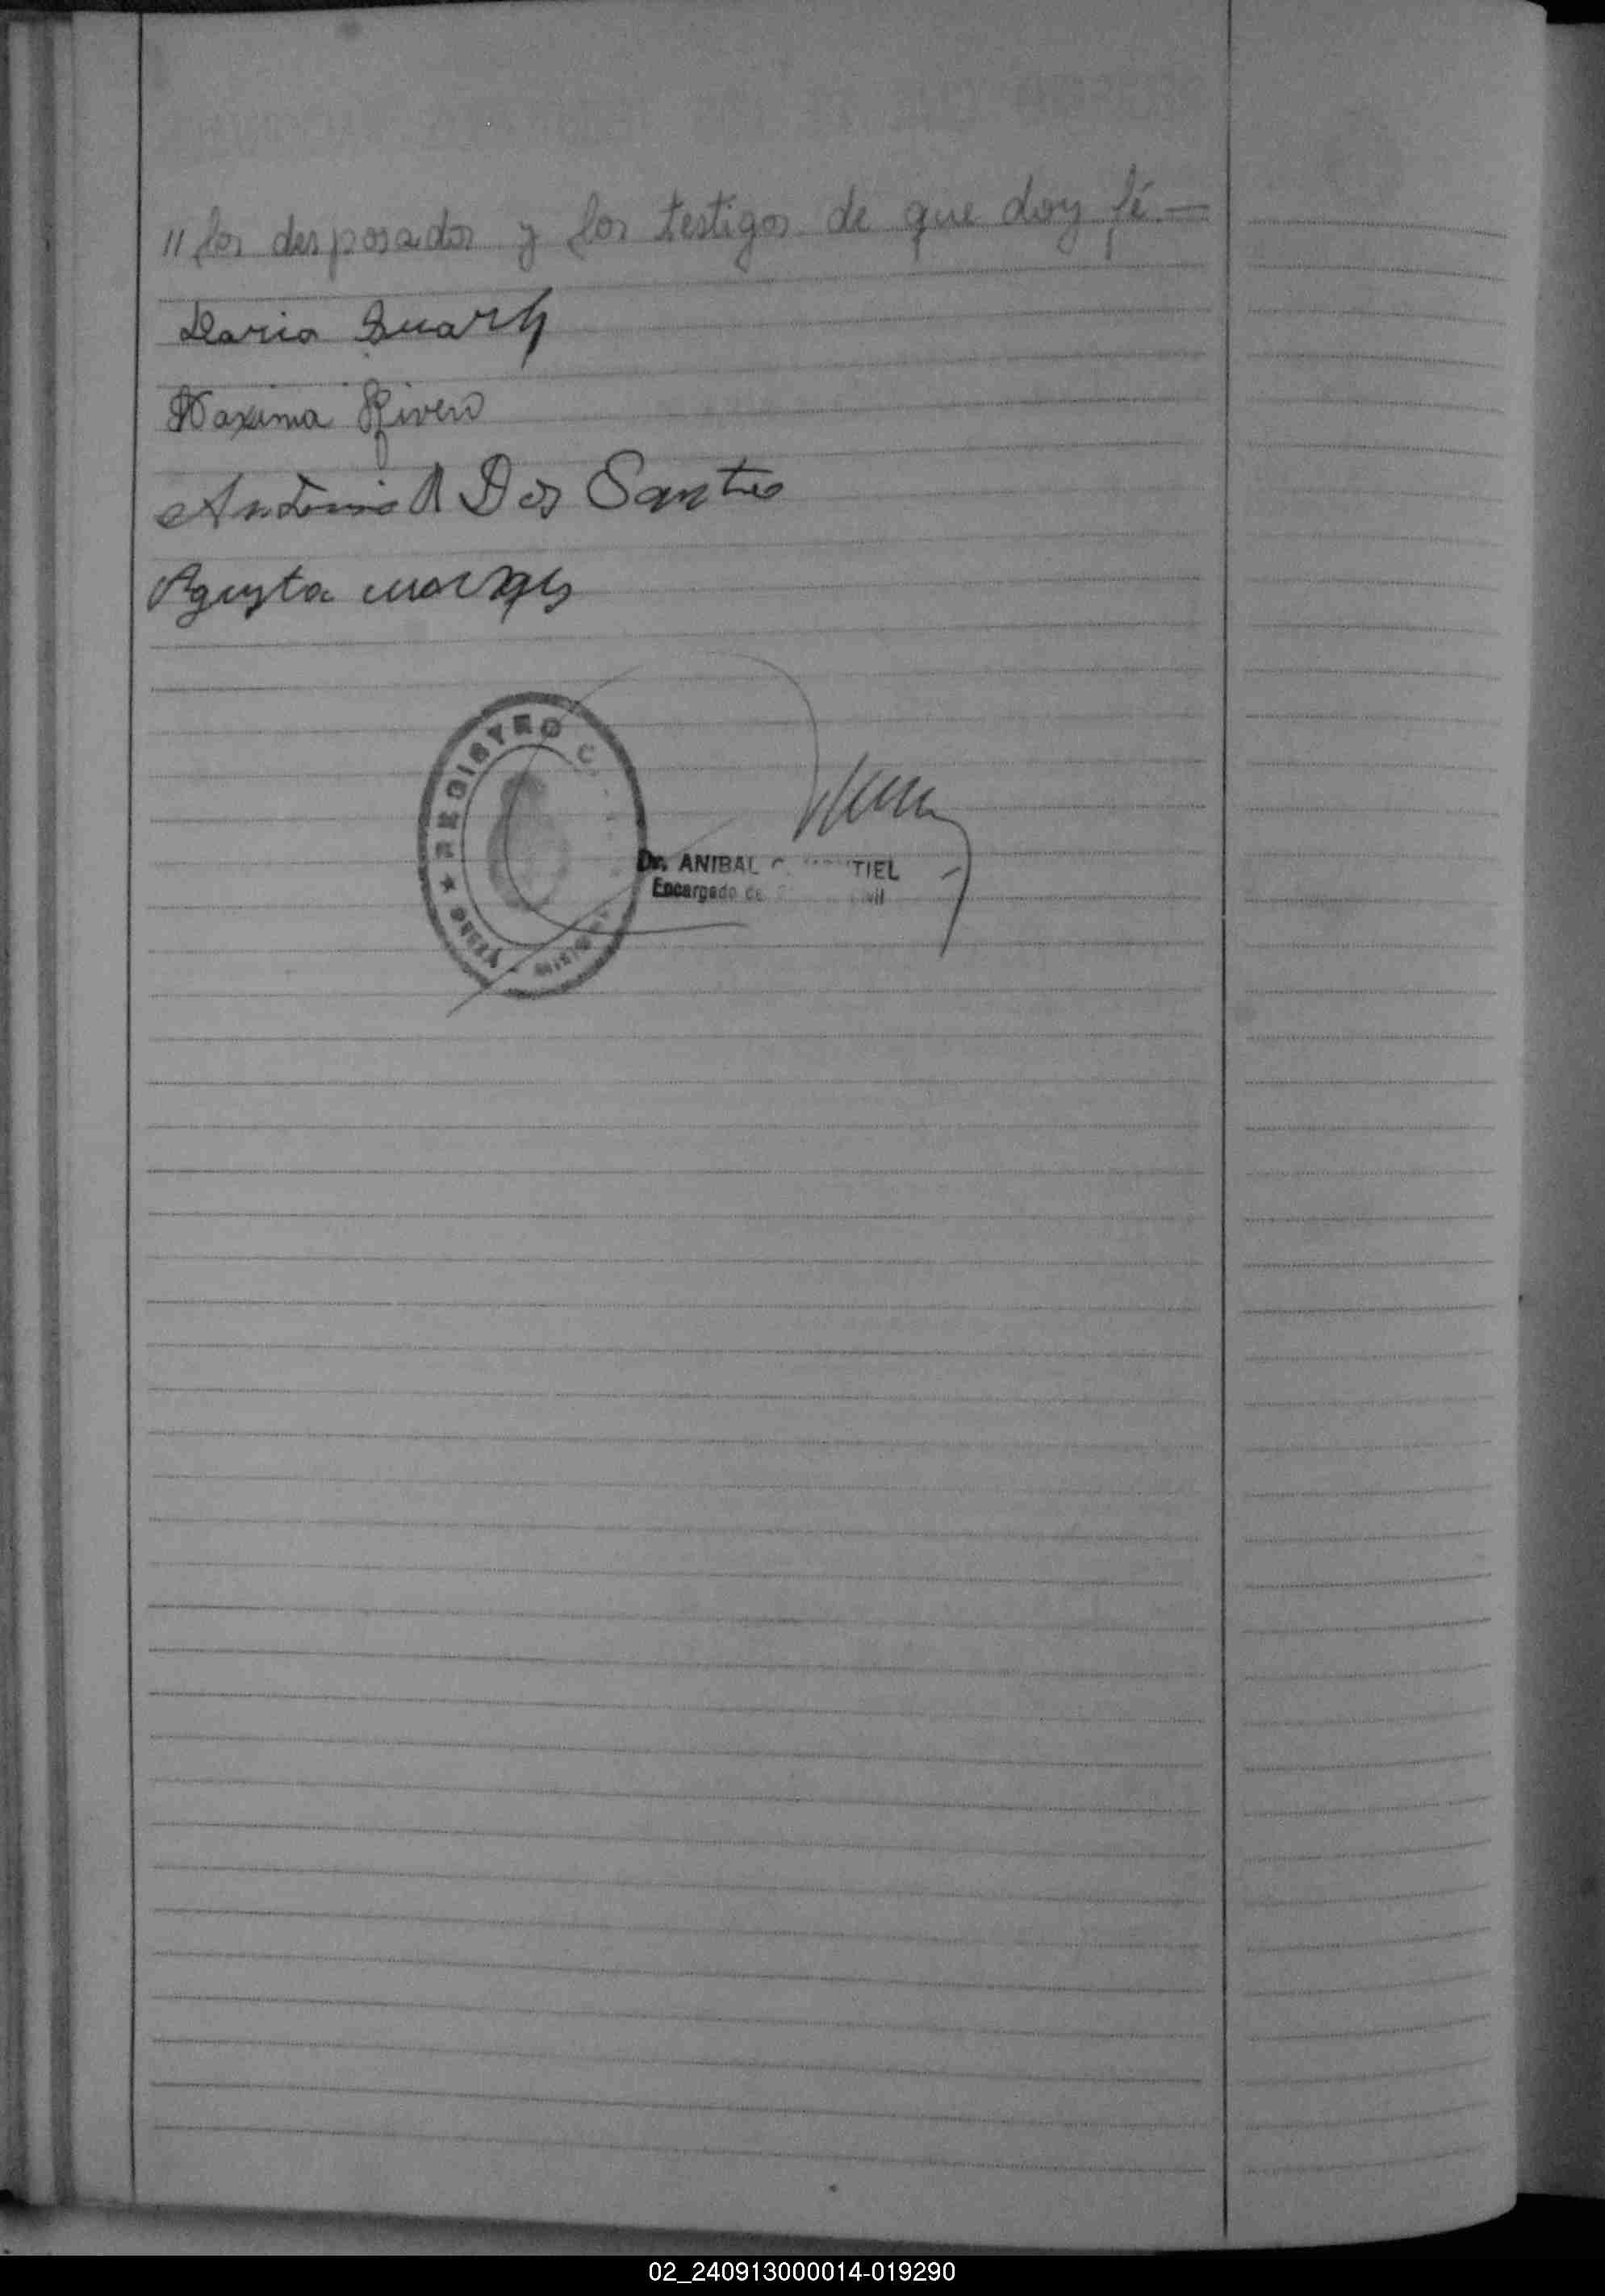 " los desposados y los testigos de que doy fé —
Dario Duarte
Maxima Rivero
Antonio A Dos Santos
Agusta
REGISTRO C
Dr. ANIBAL TIEL
Encargado de
02_240913000014-019290